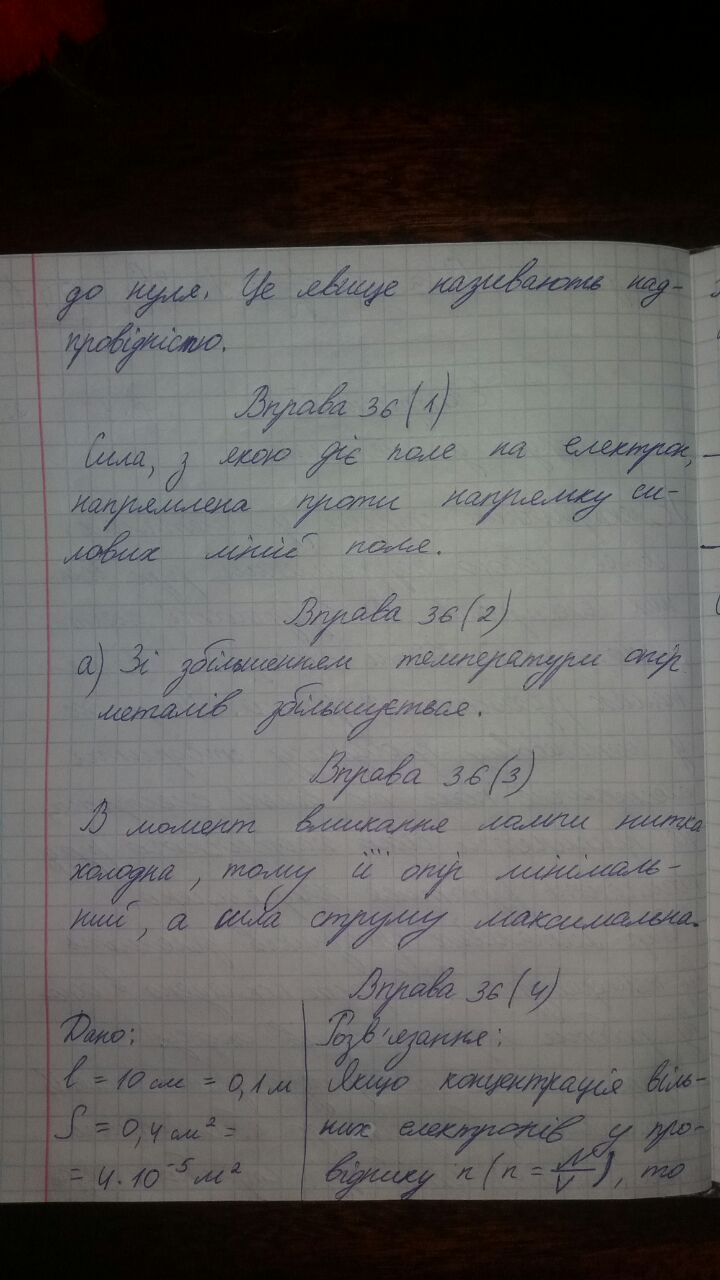 до нуля. Це явище називають над-
провідністю.
Вправа 36 (1)
Сила, з якою діє поле на електрон,
напрямлена проти напрямку си-
лових ліній поля.
Вправа 36 (2)
а) Зі збільшенням температури опір
металів збільшується.
Вправа 36 (3)
В момент вмикання лампи нитка
холодна, тому її опір мінімаль-
ний, а сила струму максимальна.
Вправа 36 (4)
Дано:
l = 10 см = 0,1 м
S = 0,4 см² =
= 4·10⁻⁵ м²
Розв'язання:
Якщо концентрація віль-
них електронів у про-
віднику n (n = N/V), то